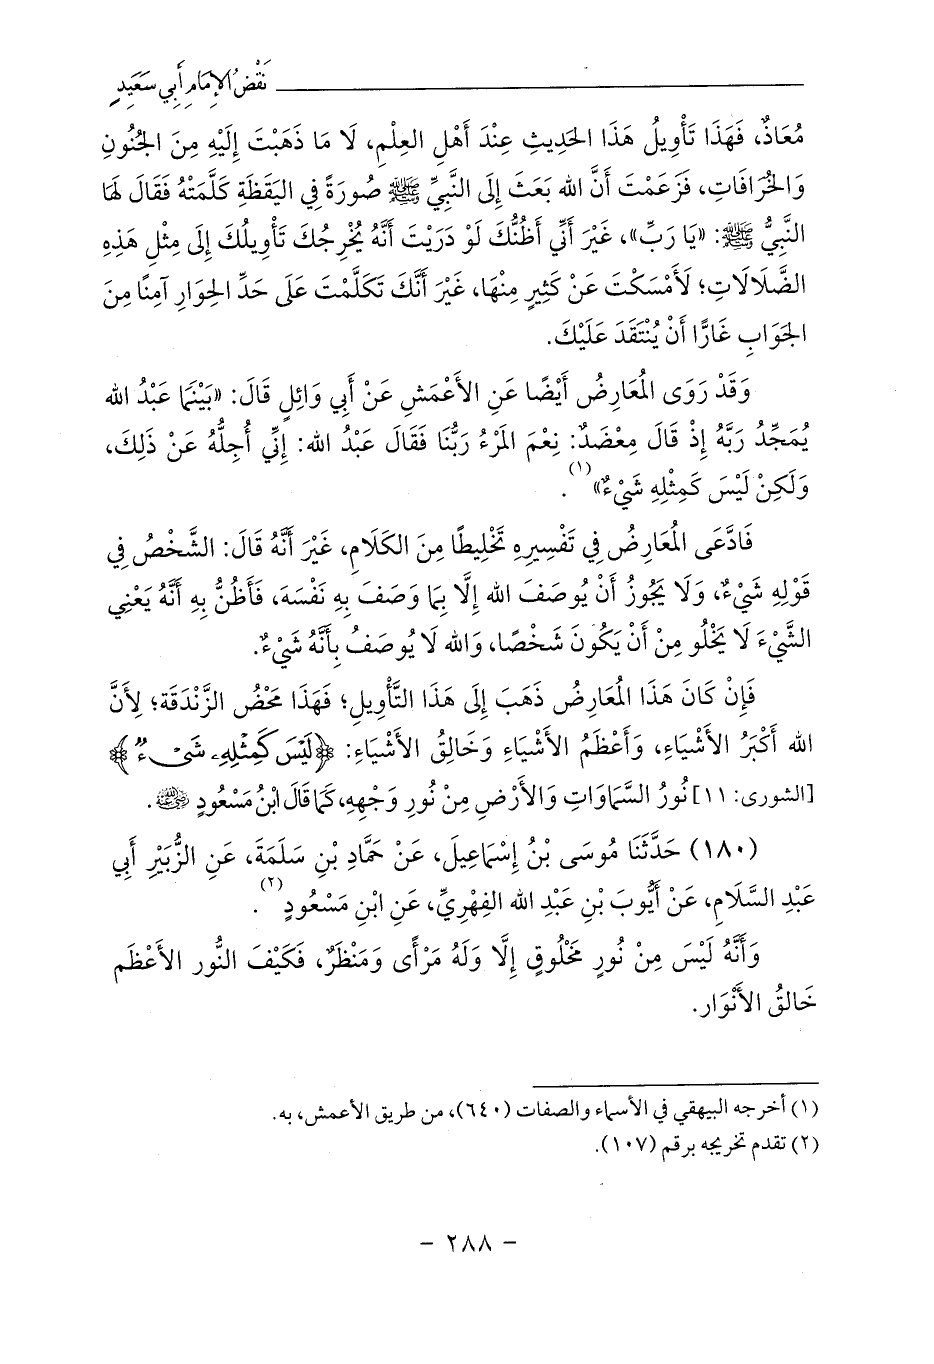 نَقْضُ الإِمَامِ أَبِي سَعِيدٍ
مُعَاذٌ، فَهَذَا تَأْوِيلُ هَذَا الحَدِيثِ عِنْدَ أَهْلِ العِلْمِ، لَا مَا ذَهَبْتَ إِلَيْهِ مِنَ الجُنُونِ
وَالخُرَافَاتِ، فَزَعَمْتَ أَنَّ الله بَعَثَ إِلَى النَّبِيِّ ﷺ صُورَةً فِي اليَقَظَةِ كَلَّمَتْهُ فَقَالَ لَهَا
النَّبِيُّ ﷺ: «يَا رَبِّ»، غَيْرَ أَنِّي أَظُنُّكَ لَوْ دَرَيْتَ أَنَّهُ يُخْرِجُكَ تَأْوِيلُكَ إِلَى مِثْلِ هَذِهِ
الضَّلَالَاتِ؛ لَأَمْسَكْتَ عَنْ كَثِيرٍ مِنْهَا، غَيْرَ أَنَّكَ تَكَلَّمْتَ عَلَى حَدِّ الحِوَارِ آمِنًا مِنَ
الجَوَابِ غَارًّا أَنْ يُنْتَقَدَ عَلَيْكَ.
وَقَدْ رَوَى المُعَارِضُ أَيْضًا عَنِ الأَعْمَشِ عَنْ أَبِي وَائِلٍ قَالَ: «بَيْنَمَا عَبْدُ الله
يُمَجِّدُ رَبَّهُ إِذْ قَالَ مِعْضَدٌ: نِعْمَ المَرْءُ رَبُّنَا فَقَالَ عَبْدُ الله: إِنِّي أُجِلُّهُ عَنْ ذَلِكَ،
وَلَكِنْ لَيْسَ كَمِثْلِهِ شَيْءٌ»(١).
فَادَّعَى المُعَارِضُ فِي تَفْسِيرِهِ تَخْلِيطًا مِنَ الكَلَامِ، غَيْرَ أَنَّهُ قَالَ: الشَّخْصُ فِي
قَوْلِهِ شَيْءٌ، وَلَا يَجُوزُ أَنْ يُوصَفَ الله إِلَّا بِمَا وَصَفَ بِهِ نَفْسَهَ، فَأَظُنُّ بِهِ أَنَّهُ يَعْنِي
الشَّيْءَ لَا يَخْلُو مِنْ أَنْ يَكُونَ شَخْصًا، وَالله لَا يُوصَفُ بِأَنَّهُ شَيْءٌ.
فَإِنْ كَانَ هَذَا المُعَارِضُ ذَهَبَ إِلَى هَذَا التَّأْوِيلِ؛ فَهَذَا مَحْضُ الزَّنْدَقَة؛ لِأَنَّ
الله أَكْبَرُ الأَشْيَاءِ، وَأَعْظَمُ الأَشْيَاءِ وَخَالِقُ الأَشْيَاءِ: ﴿لَيْسَ كَمِثْلِهِۦ شَىْءٌ﴾
[الشورى: ١١] نُورُ السَّمَاوَاتِ وَالأَرْضِ مِنْ نُورِ وَجْهِهِ، كَمَا قَالَ ابْنُ مَسْعُودٍ رضي الله عنه.
(١٨٠) حَدَّثَنَا مُوسَى بْنُ إِسْمَاعِيلَ، عَنْ حَمَّادِ بْنِ سَلَمَةَ، عَنِ الزُّبَيْرِ أَبِي
عَبْدِ السَّلَامِ، عَنْ أَيُّوبَ بْنِ عَبْدِ الله الفِهْرِيِّ، عَنِ ابْنِ مَسْعُودٍ(٢).
وَأَنَّهُ لَيْسَ مِنْ نُورٍ مَخْلُوقٍ إِلَّا وَلَهُ مَرْأًى وَمَنْظَرٌ، فَكَيْفَ النُّور الأَعْظَم
خَالقُ الأَنْوَار.
(١) أخرجه البيهقي في الأسماء والصفات (٦٤٠)، من طريق الأعمش، به.
(٢) تقدم تخريجه برقم (١٠٧).
- ٢٨٨ -